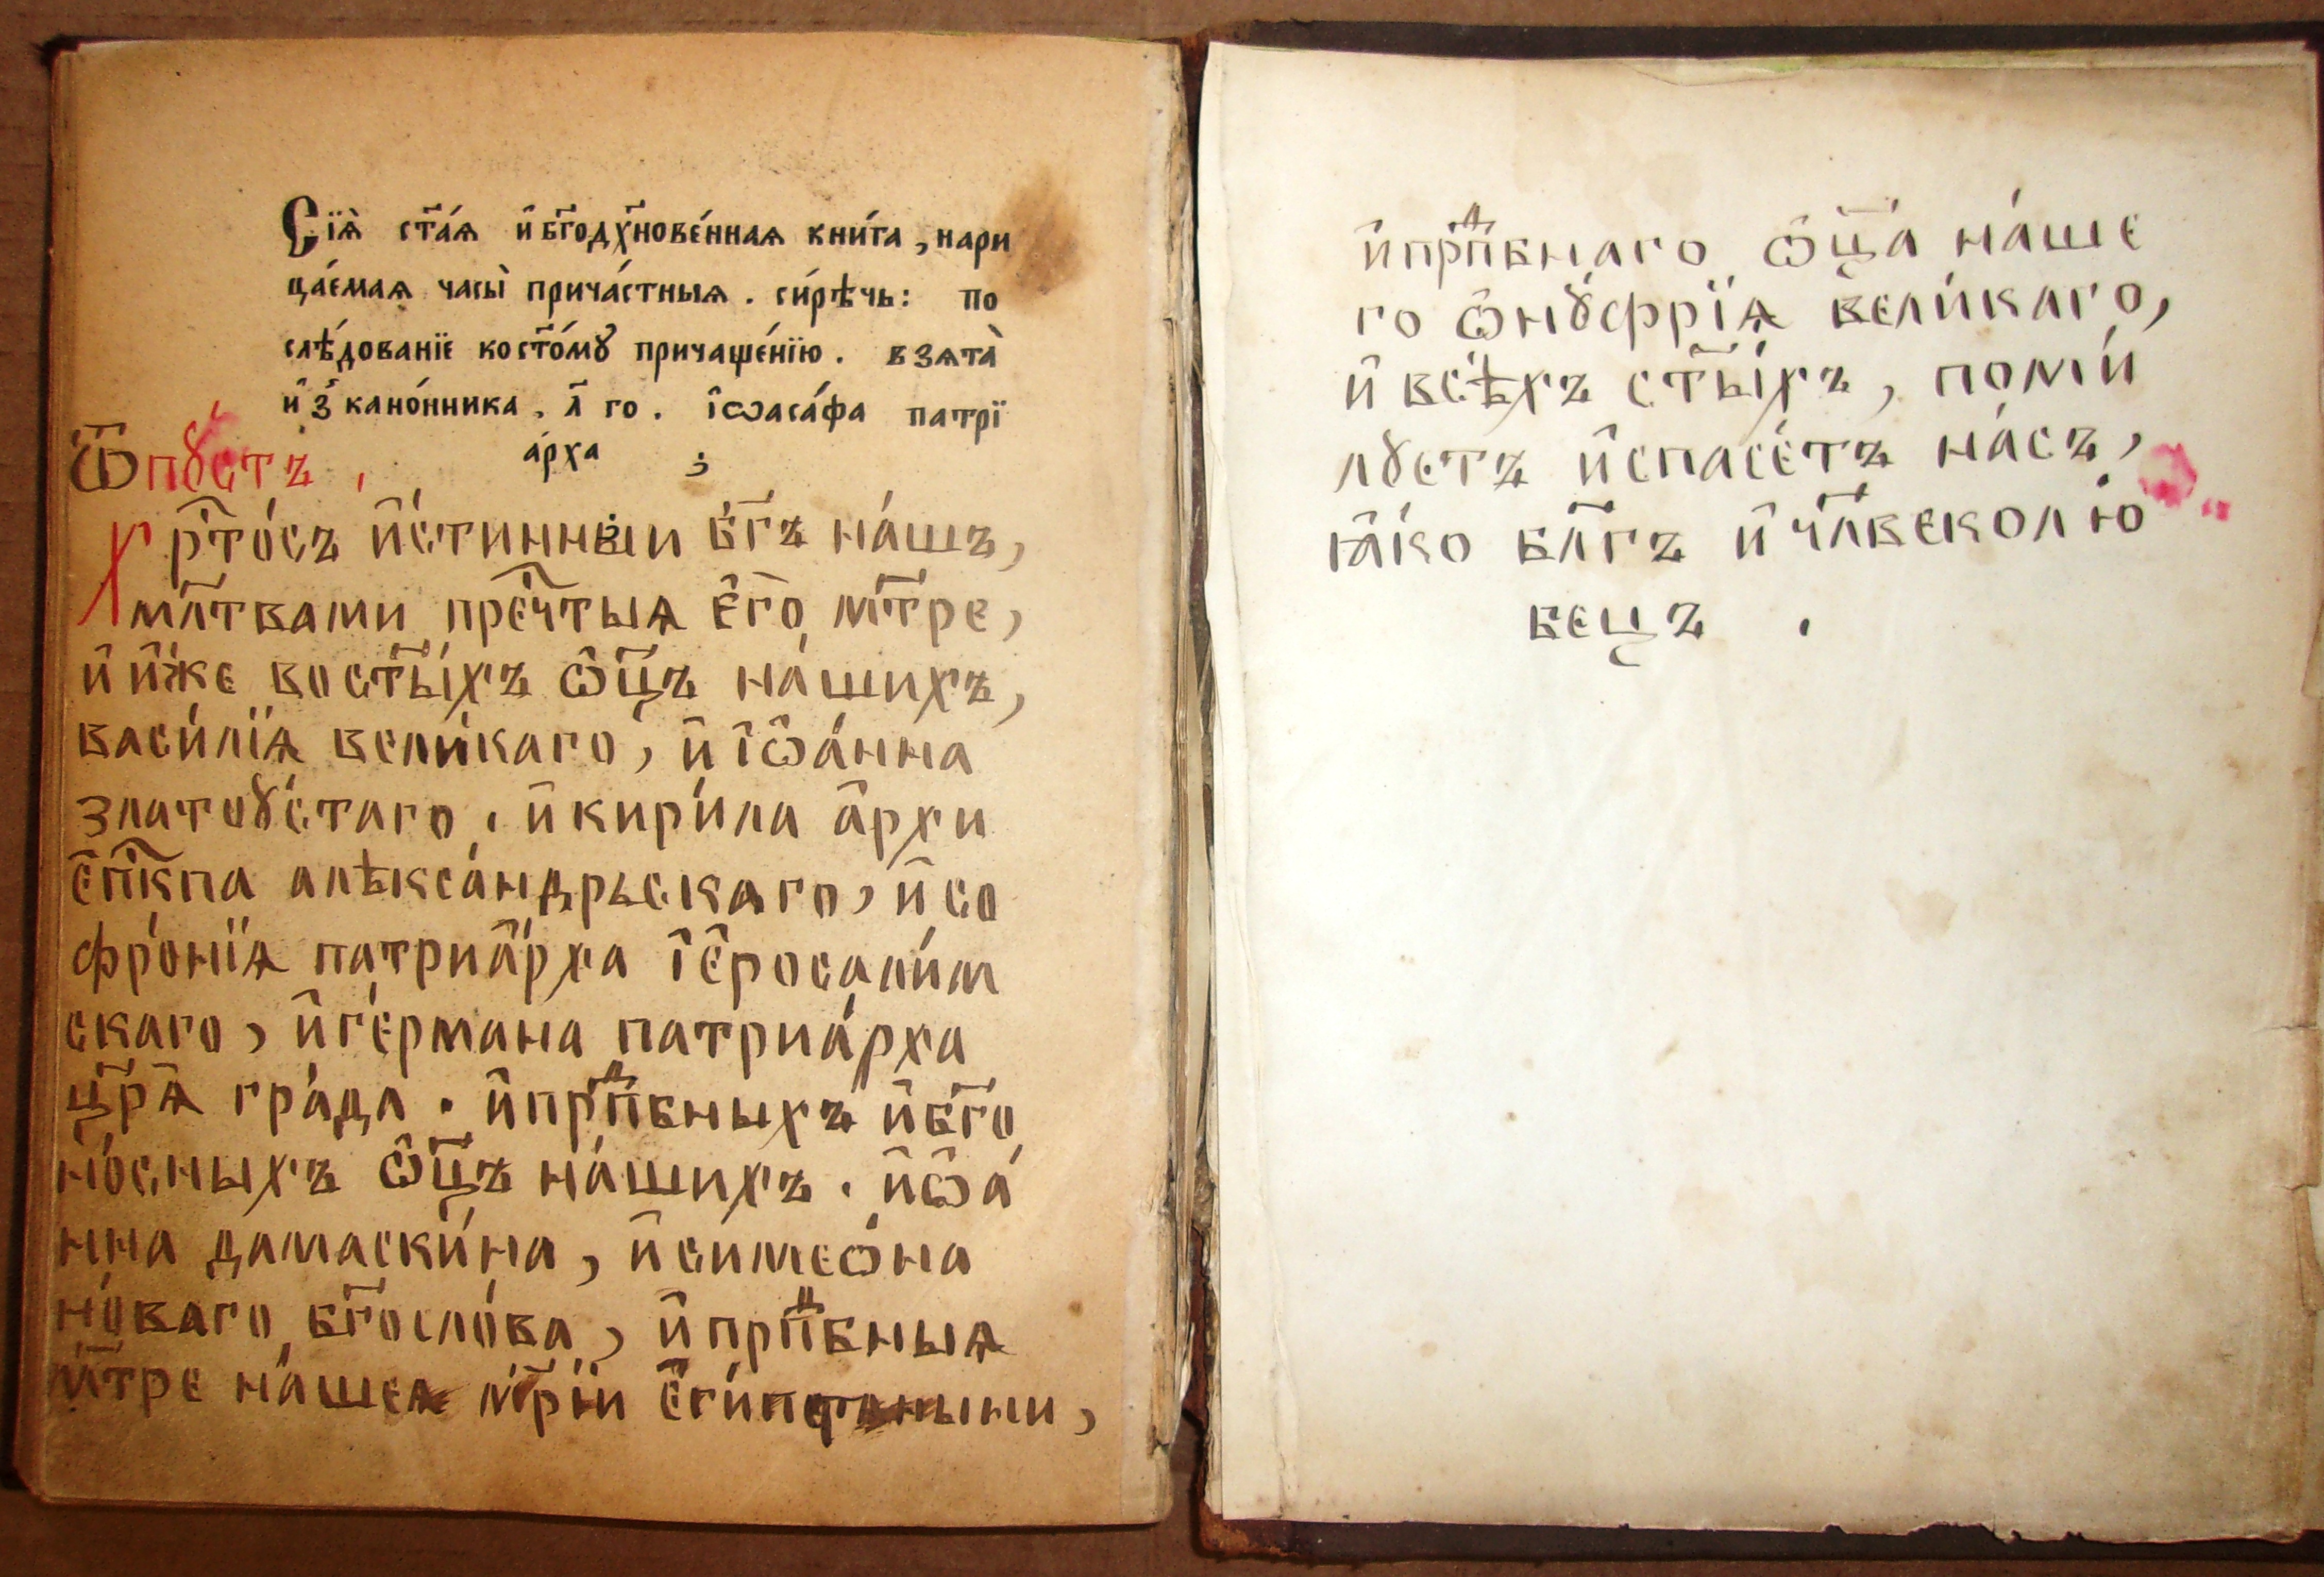 Сїѧ̀ ст҃а́ѧ и҆ бг҃одх҃нове́ннаѧ кни́га, нари
ца́емаѧ часы̀ прича́стныѧ. си́рѣчь: по
слѣ́дованїе кост҃о́мꙋ причаще́нїю. взѧта̀
и҆з̾ кано́нника, а҃ го. і҆ѡаса́фа патрї
а́рха ;
Ѿпꙋ́стъ,
Хрⷭ҇то́съ и҆́стинныи бг҃ъ на́шъ,
мл҃твами пречⷭ҇тыѧ є҆го̀ мт҃ре,
и҆ и҆́же вост҃ы́хъ ѻ҆ц҃ъ на́шихъ,
васи́лїѧ вели́каго, и҆ і҆ѡ҆а́нна
златоꙋ́стаго, и҆ кири́ла а҆рхи
є҆пⷭ҇кпа алѣкса́ндрьскаго, и҆ со
фро́нїѧ патриа҆́рха і҆є҆росали́м
скаго, и҆ ге́рмана патриа́рха
цр҃ѧ̀ гра́да. и҆ прпⷣбныхъ и҆ бг҃о
но́сныхъ ѻ҆ц҃ъ на́шихъ. и҆ѡ҆а́
нна дамаски́на, и҆ симео́на
но́ваго бг҃осло́ва, и҆ прпⷣбныѧ
мт҃ре на́шеѧ мр҃їи
и҆ прпⷣбнаго ѻ҆ц҃а̀ на́ше
го ѻ҆нꙋ́фрїѧ вели́каго,
и҆ всѣ́хъ ст҃ы́хъ, поми́
лꙋетъ и҆ спасе́тъ на́съ,
ꙗ҆́ко бл҃гъ и҆ чл҃веколю́
бецъ.